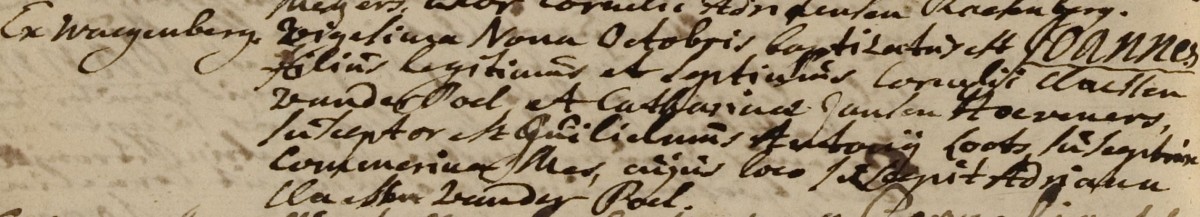 Meyers, uxor Cornelii Adriaensen Raesenberg.
Ex Waegenberg. Vigesima Nona Octobris baptizatus est Joannes
filius legitimus et septimus Cornelii Claessen
vander Poel, et Catharinae Jansen Hoeveners,
susceptor est Guilielmus Antonij Loots, susceptrix
Commerina Mes, cujus loco suscepit Adriana
Claessen vander Poel.